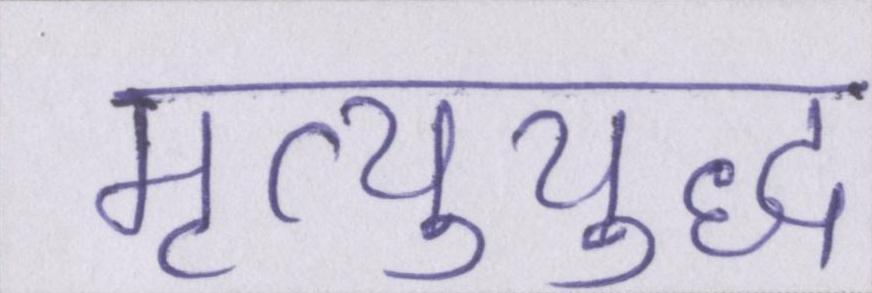 मृत्युयुद्ध